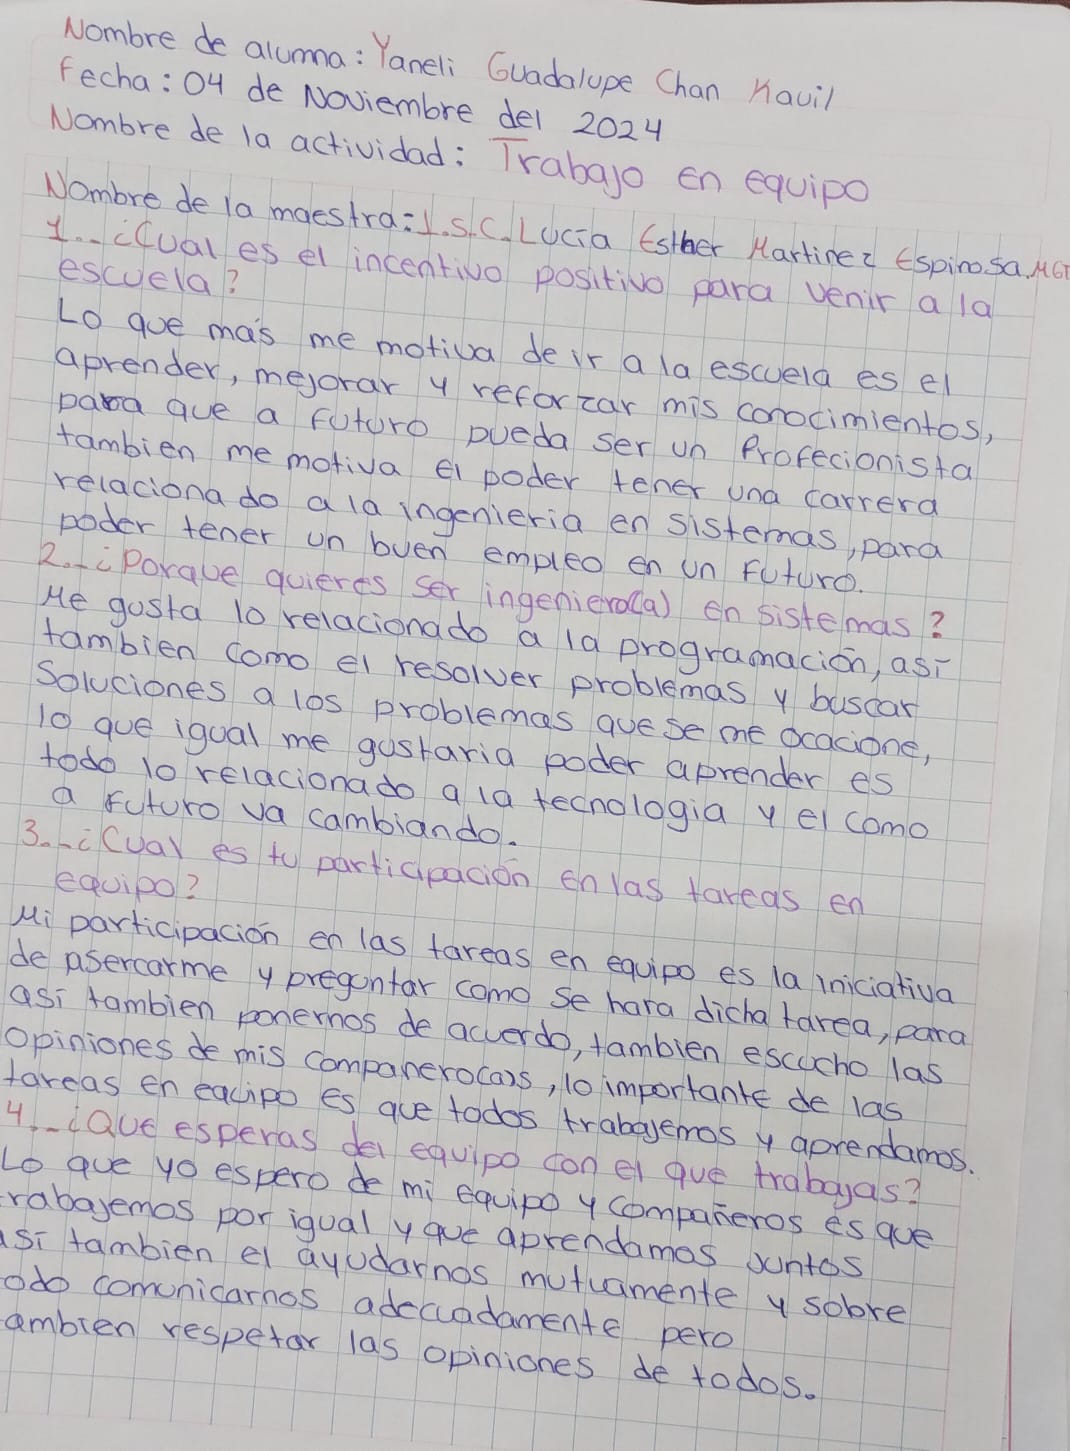 Nombre de alumna: Yaneli Guadalupe Chan Kauil
Fecha: 04 de Noviembre del 2024
Nombre de la actividad: Trabajo en equipo
Nombre de la maestra: I.S.C. Lucía Esther Martinez Espinosa. MGT
1.- ¿Cual es el incentivo positivo para venir a la
escuela?
Lo que más me motiva de ir a la escuela es el
aprender, mejorar y reforzar mis conocimientos,
para que a futuro pueda ser un Profecionista
tambien me motiva el poder tener una carrera
relacionado a la ingenieria en sistemas, para
poder tener un buen empleo en un futuro.
2.- ¿Porque quieres ser ingeniero(a) en sistemas?
Me gusta lo relacionado a la programación, así
tambien como el resolver problemas y buscar
Soluciones a los problemas que se me ocacione,
lo que igual me gustaria poder aprender es
todo lo relacionado a la tecnologia y el como
a futuro va cambiando.
3.- ¿Cual es tu participación en las tareas en
equipo?
Mi participación en las tareas en equipo es la iniciativa
de asercarme y preguntar como se hara dicha tarea, para
así tambien ponernos de acuerdo, tambien escucho las
Opiniones de mis companero(a)s, lo importante de las
tareas en equipo es que todos trabajemos y aprendamos.
4.- ¿Que esperas del equipo con el que trabajas?
Lo que yo espero de mi equipo y compañeros es que
rabajemos por igual y que aprendamos juntos
así tambien el ayudarnos mutuamente y sobre
odo comunicarnos adecuadamente pero
ambien respetar las opiniones de todos.